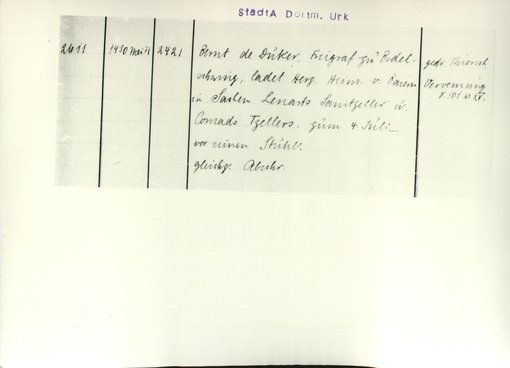 StadtA Dortm. Urk
2611 1430 Mai 11 2421 Bernt de Düker, Freigraf zu Bodel-
schwing, ladet Herz. Heinr. v. Baiern
in Sachen Lenarts Sanitzeller u.
Conrads Tzellers. zum 4 Juli
vor seinen Stuhl.
gleichz. Abschr.
gedr. Thiersch
Vervemung